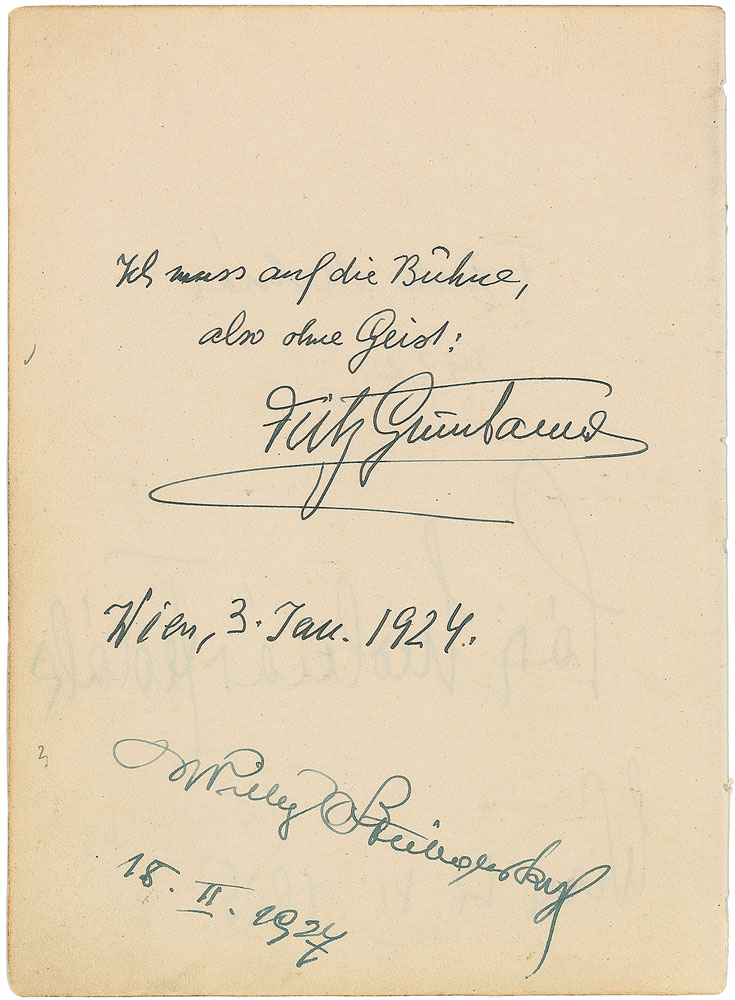 Ich muss auf die Bühne,
also ohne Geist:
Fritz Grünbaum
Wien, 3. Jan. 1924.
Willy
18. II. 1927